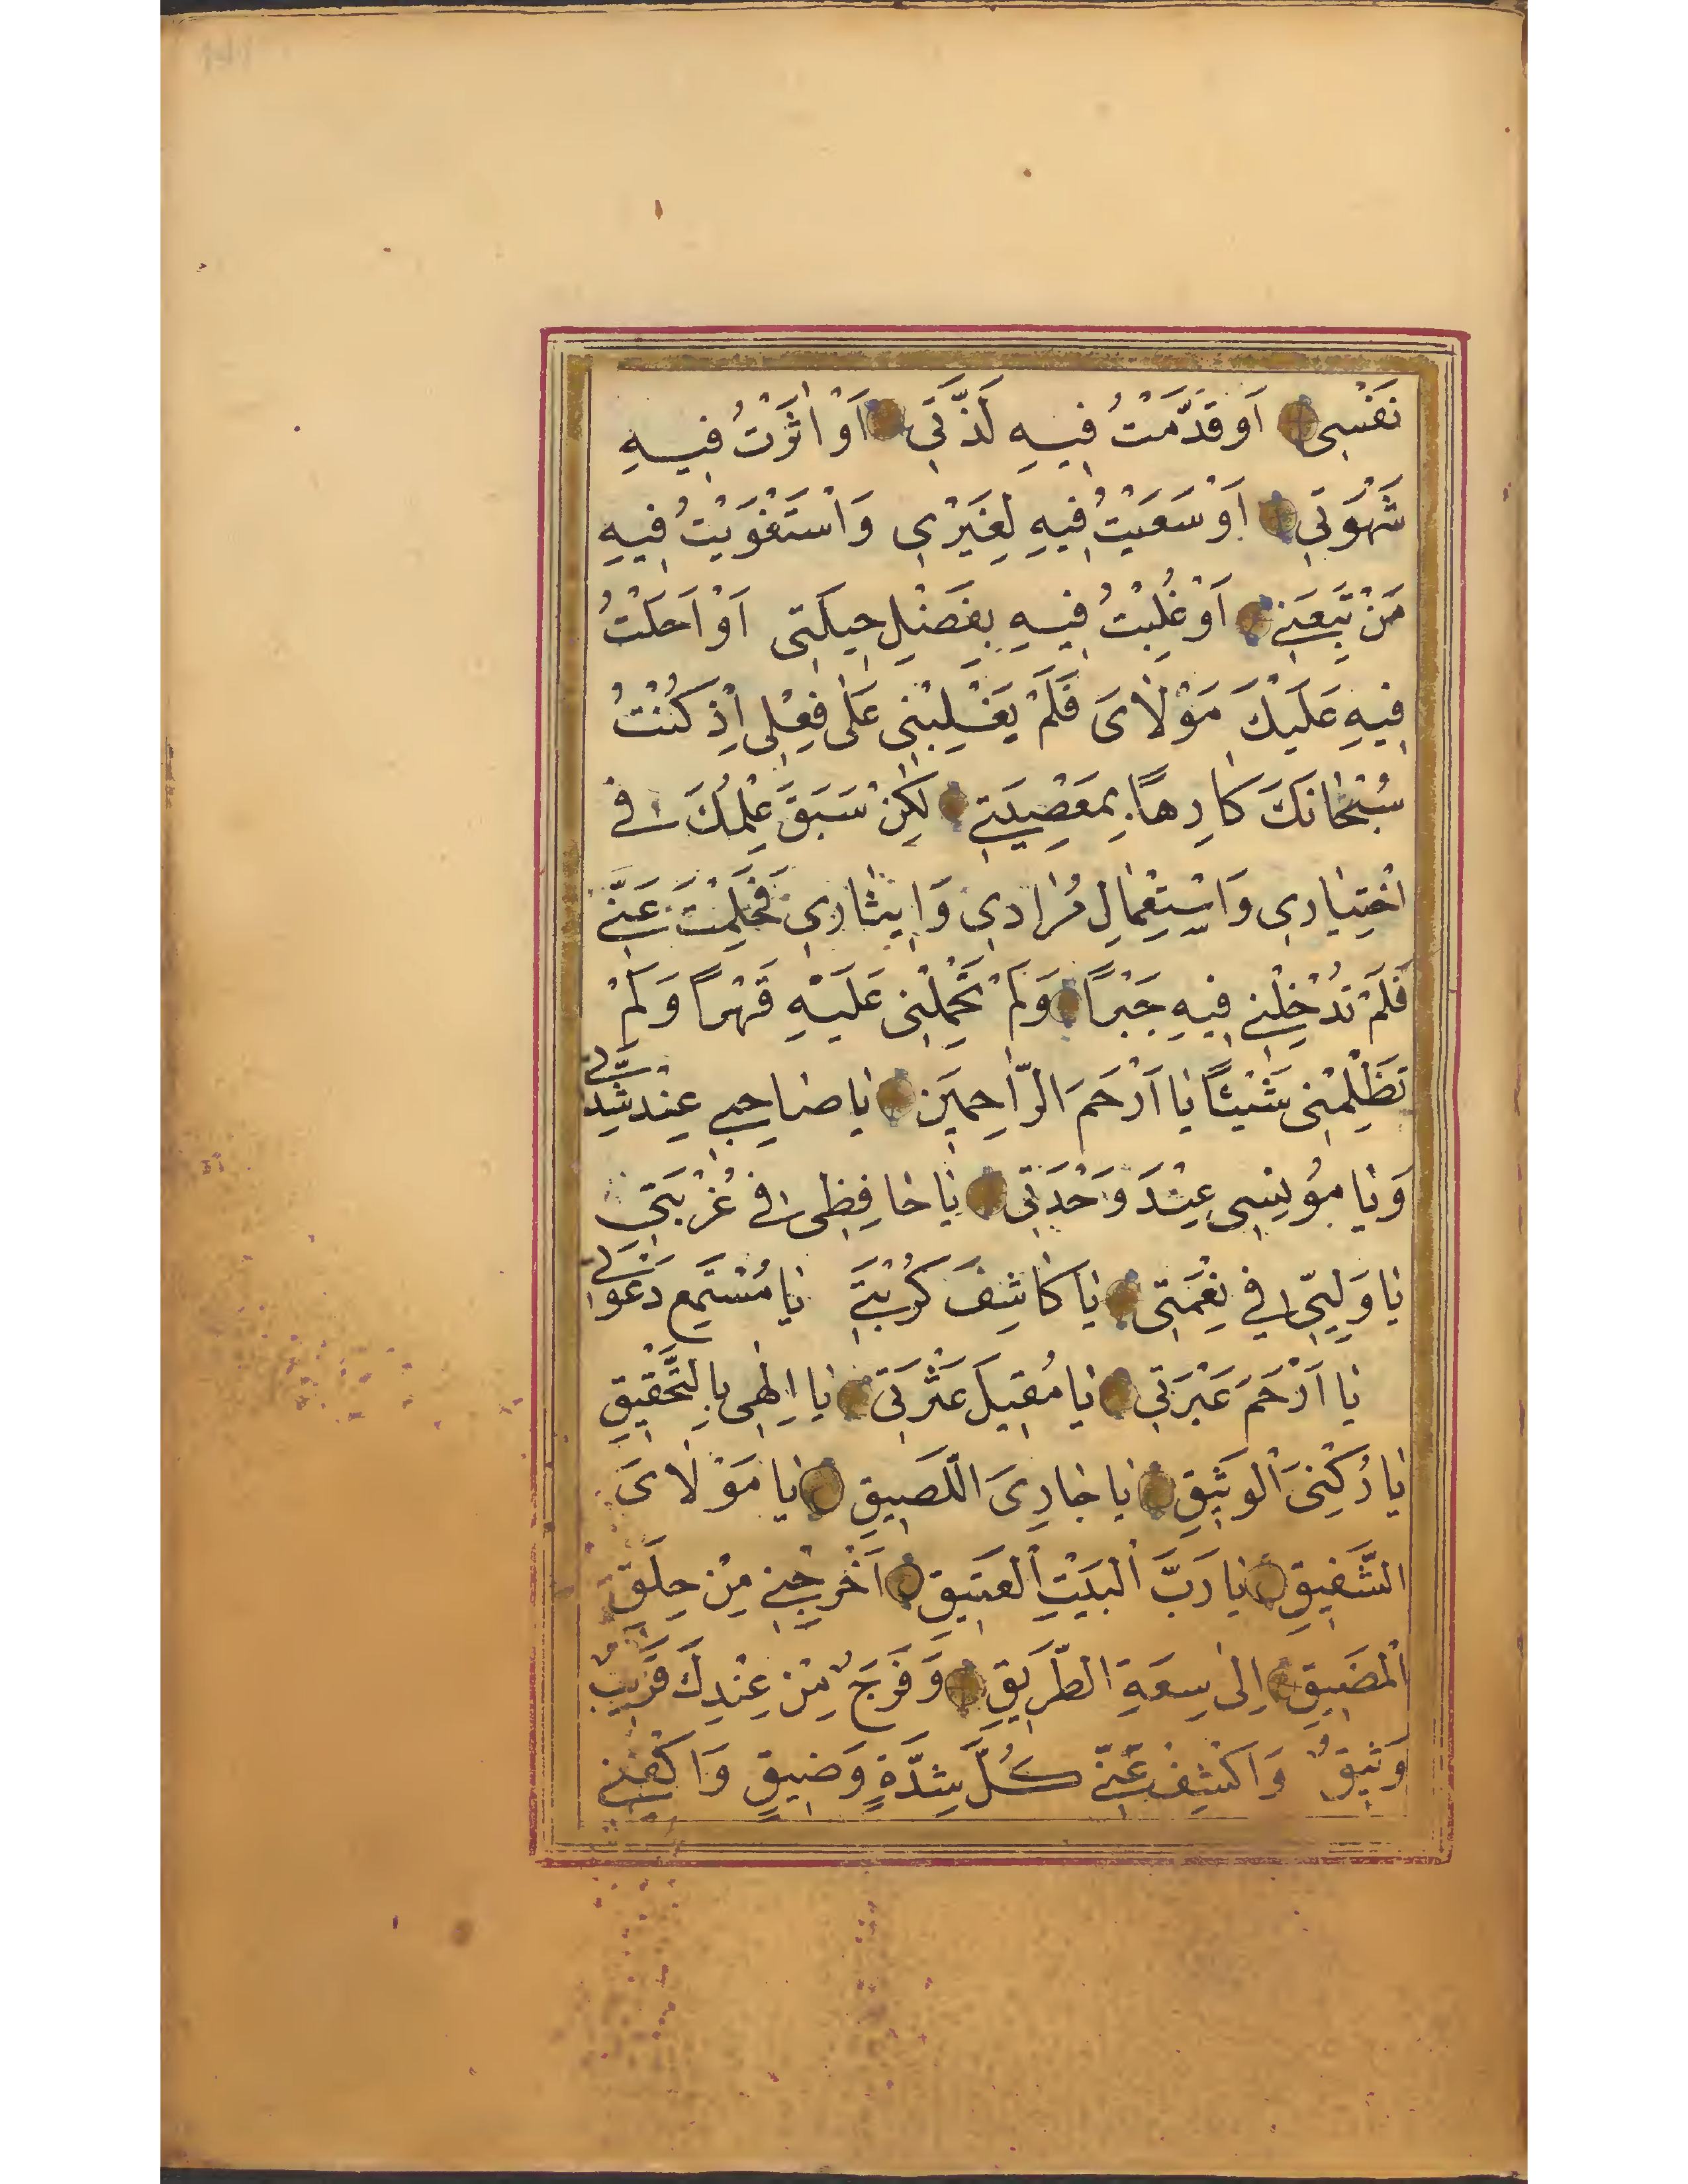 نَفْسِی اَوْ قَدَّمْتُ فِیهِ لَذَّتِی اَوْ اٰثَرْتُ فِیهِ
شَهْوَتِی اَوْ سَعَیْتُ فِیهِ لِغَیْرِی وَاسْتَغْوَیْتُ فِیهِ
مَنْ تَبِعَنِی اَوْ غُلِبْتُ فِیهِ بِفَضْلِ حِیلَتِی اَوْ اَحَلْتُ
فِیهِ عَلَیْكَ مَوْلَایَ فَلَمْ یَغْلِبْنِی عَلٰی فِعْلِی اِذْ كُنْتُ
سُبْحَانَكَ كَارِهًا بِمَعْصِیَتِی لٰكِنْ سَبَقَ عِلْمُكَ فِی
اخْتِیَارِی وَاسْتِعْمَالِ مُرَادِی وَاِیثَارِی فَحَلِمْتَ عَنِّی
فَلَمْ تُدْخِلْنِی فِیهِ جَبْرًا وَلَمْ تَحْمِلْنِی عَلَیْهِ قَهْرًا وَلَمْ
تَظْلِمْنِی شَیْئًا یَا اَرْحَمَ الرَّاحِمِینَ یَا صَاحِبِی عِنْدَ شِدَّتِی
وَیَا مُونِسِی عِنْدَ وَحْدَتِی یَا حَافِظِی فِی غُرْبَتِی
یَا وَلِیِّی فِی نِعْمَتِی یَا كَاشِفَ كُرْبَتِی یَا مُسْتَمِعَ دَعَوَاتِی
یَا اَرْحَمَ عَبْرَتِی یَا مُقِیلَ عَثْرَتِی یَا اِلٰهِی بِالتَّحْقِیقِ
یَا رُكْنِیَ الْوَثِیقِ یَا جَارِیَ اللَّصِیقِ یَا مَوْلَایَ
الشَّفِیقِ یَا رَبَّ الْبَیْتِ الْعَتِیقِ اَخْرِجْنِی مِنْ حِلَقِ
الْمَضِیقِ اِلٰی سِعَةِ الطَّرِیقِ وَفَرَجٍ مِنْ عِنْدِكَ قَرِیبٍ
وَثِیقٍ وَاكْشِفْ عَنِّی كُلَّ شِدَّةٍ وَضِیقٍ وَاكْفِنِی